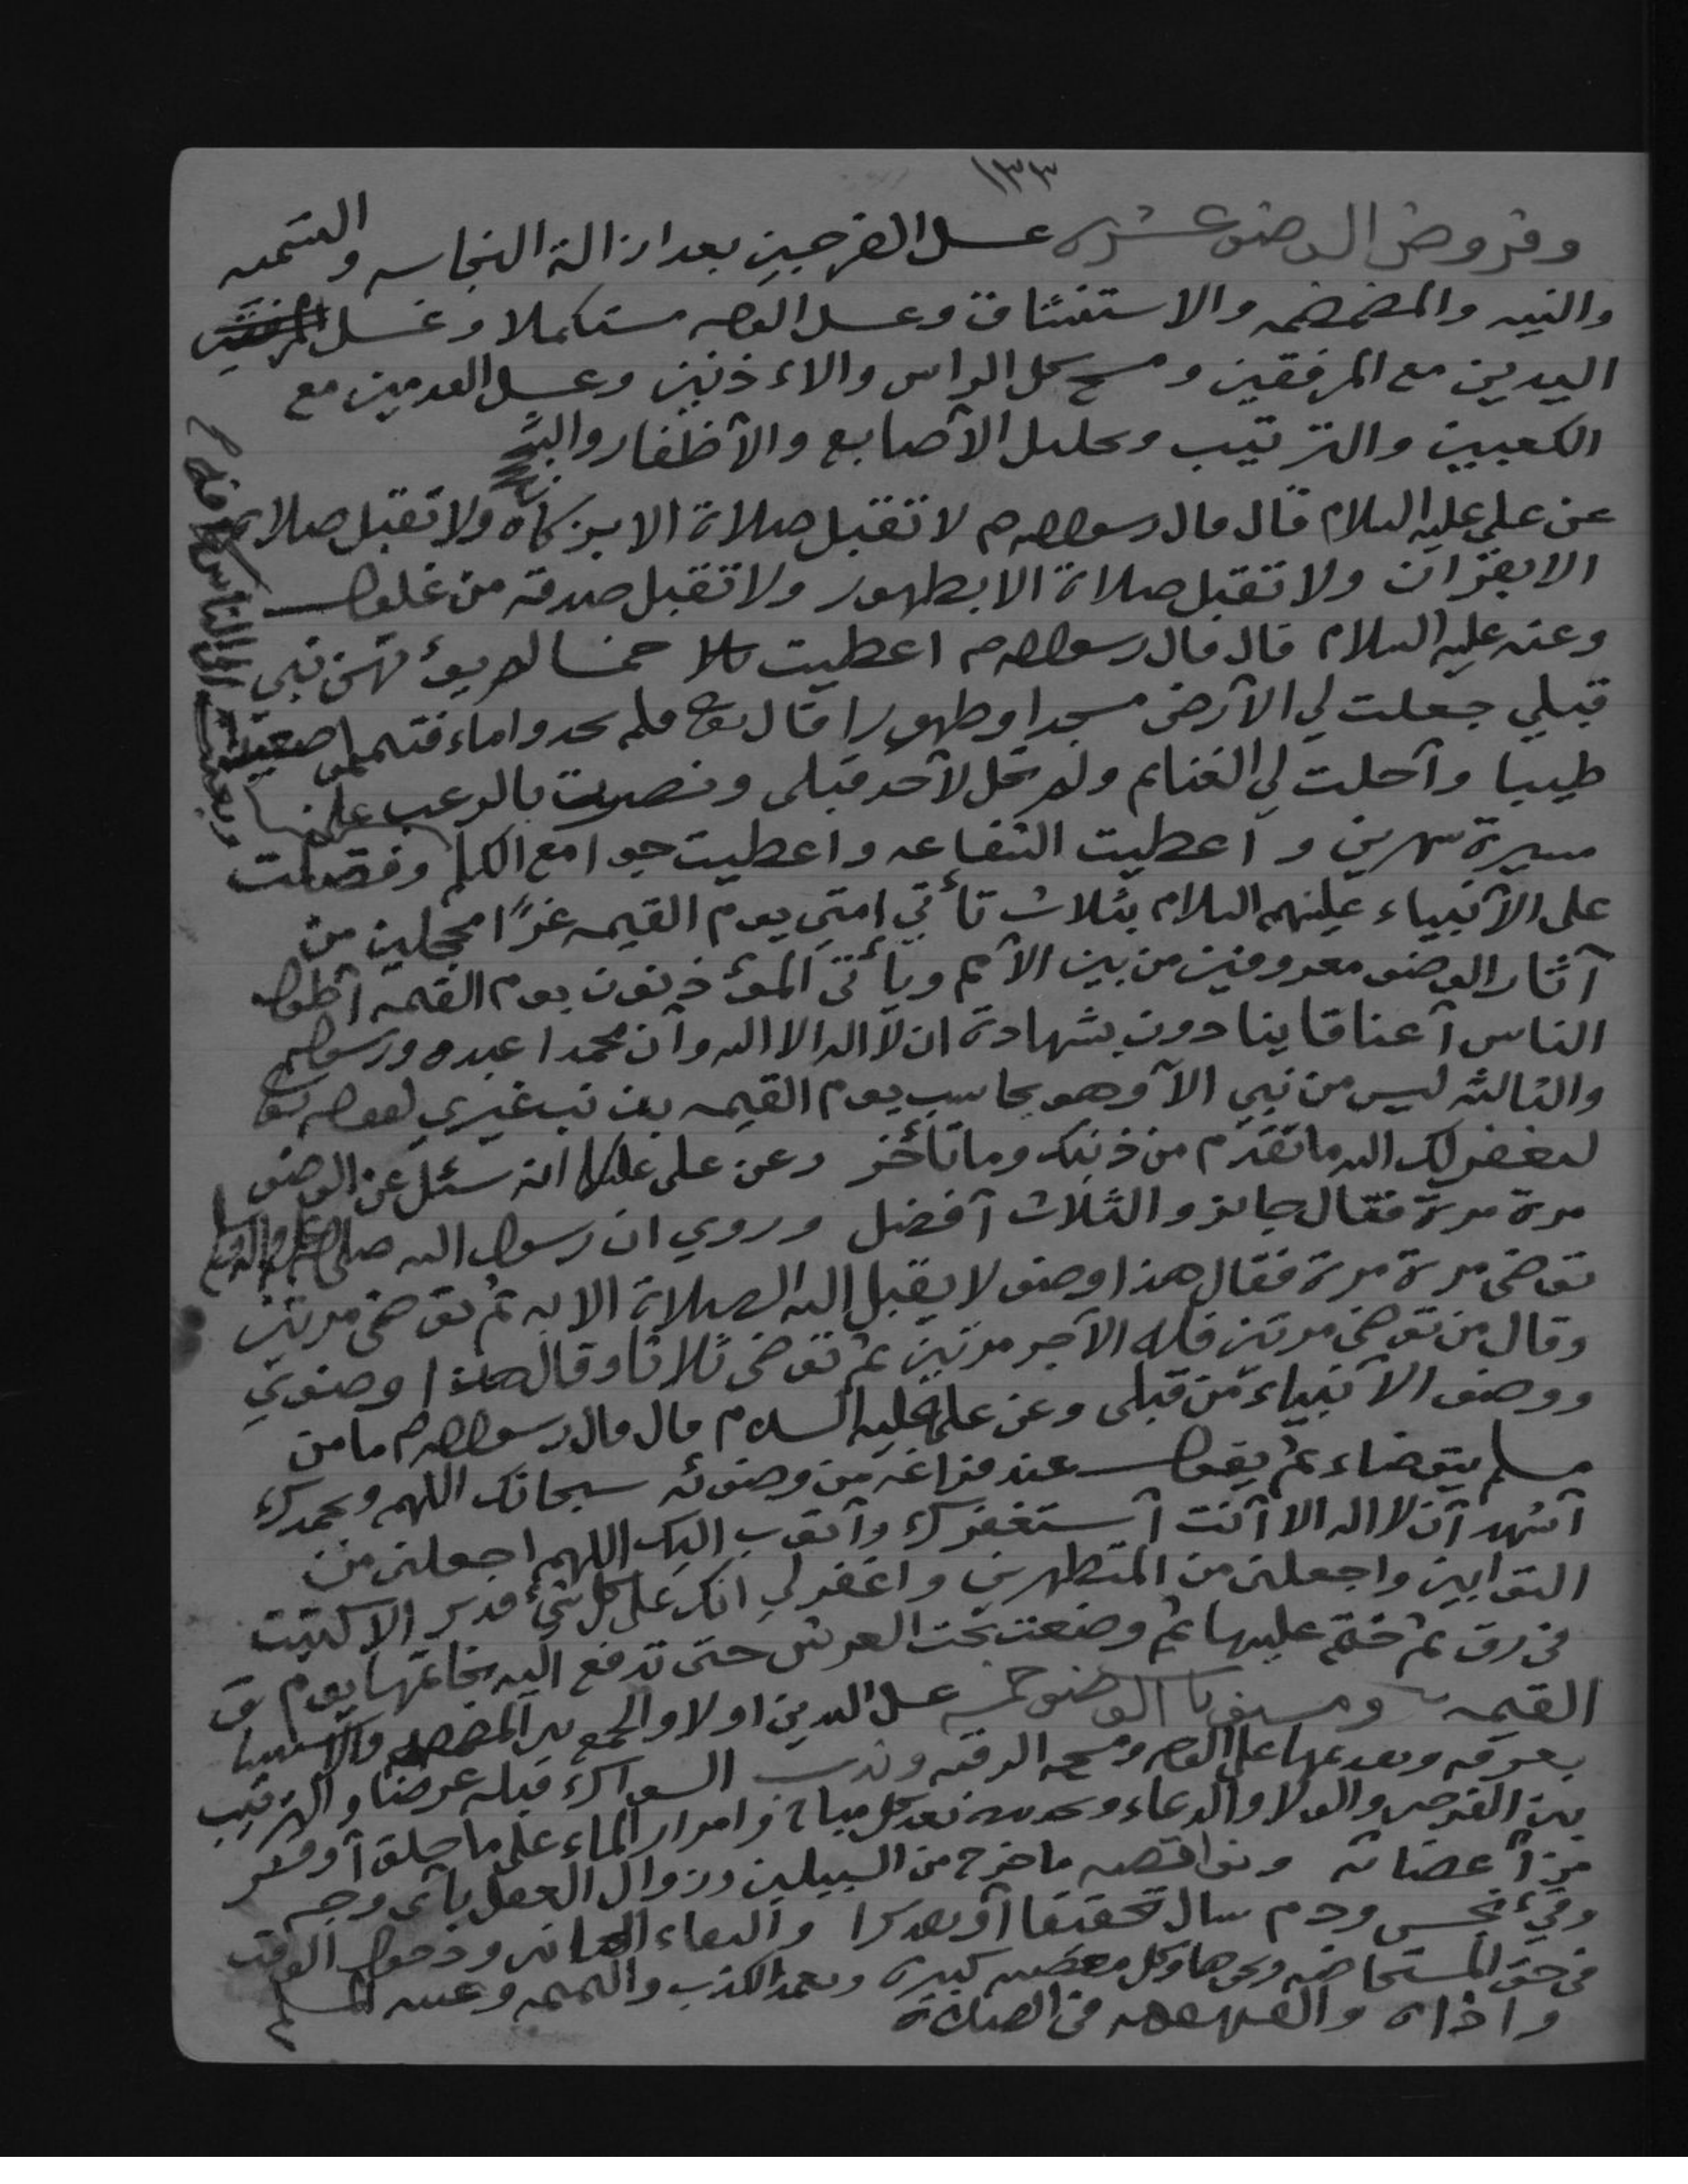 ١٣٣
وفروض الوضوء عشره غسل الفرجين بعد ازالة النجاسه والتسميه
والنيه والمضمضه والاستنشاق وغسل الوجه مستكملا وغسل
اليدين مع المرفقين ومسح كل الراس والاءذنين وغسل القدمين مع
الكعبين والترتيب وتخليل الآصابع والآظفار والشج
عن علي عليه السلام قال قال رسول الله صم لا تقبل صلاة الا بزكاة ولا تقبل صلاة
الا بقرآن ولا تقبل صلاة الا بطهور ولا تقبل صدقه من غلول
وعنه عليه السلام قال قال رسول الله صم اعطيت خمسا لم يوءتهن نبي
قبلي جعلت لي الآرض مسجدا وطهورا قال تعا فلم تجدوا ماء فتيمموا صعيدا
طيبا وآحلت لي الغنايم ولم تحل لآحد قبلي ونصرت بالرعب على
مسيرة شهرين و آعطيت الشفاعه واعطيت جوامع الكلم وفضلت
وبعثت الى الناس كافه
على الآنبياء عليهم السلام بثلاث تأتي امتي يوم القيمه غرًا محجلين من
آثار الوضوء معروفين من بين الآمم ويأتي الموءذنون يوم القيمه آطول
الناس آعناقا ينادون بشهادة ان لآ اله الا الله وآن محمدا عبده ورسوله
والثالثه ليس من نبي الآ وهو يحاسب يوم القيمه بذنب غيري لقوله تعا
ليغفر لك الله ما تقدم من ذنبك وما تأخر وعن علي عليلم انه سئل عن الوضوء
مرة مرة فقال جايز والثلاث آفضل وروي ان رسول الله صلى الله عليه واله وسلم
توضى مرة مرة فقال هذا وضو لا يقبل الله الصلاة الا به ثم توضى مرتين
وقال من توضى مرتين فله الآجر مرتين ثم توضى ثلاثا وقال هذا وضوي
ووضوء الآنبياء من قبلي وعن علي عليه السلام قال قال رسول الله صم ما من
مسلم يتوضاء ثم يقول عند فراغه من وضوئه سبحانك اللهم وبحمدك
آشهد آن لا اله الا آنت آستغفرك وآتوب اليك اللهم اجعلني من
التوابين واجعلني من المتطهرين واغفر لي انك على كل شيء قدير الا كتبت
في رق ثم ختم عليها ثم وضعت تحت العرش حتى تدفع اليه بخاتمها يوم
القيمه ومسنونا الوضوء خمسه غسل اليدين اولا والجمع بين المضمضه والاستنشاق
بغرفه وتقديمها على الوجه ومسح الرقبه وندب السواك قبله عرضا والترتيب
بين الفرجين والولا والدعاء وتجديده بعد كل مباح وامرار الماء على ما حلق آو قشر
من آعضائه ونواقضه ما خرج من السبيلين وزوال العقل بآي وجه
وقيء نجس ودم سال تحقيقا آو تقديرا والتقاء الختانين ودخول الوقت
في حق المستحاضه ونحوها وكل معصيه كبيره وتعمد الكذب والنميمه وغيبه المسلم
واذاه والقهقهه في الصلاة